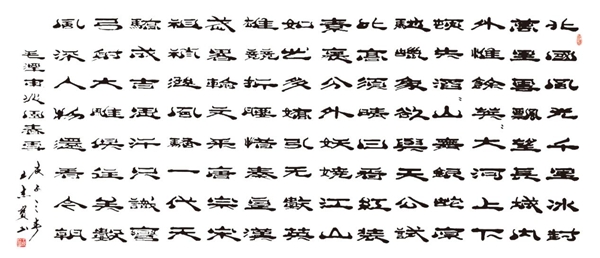 北國風光千里冰封
萬里雪飄望長城內
外惟餘莽〻大河上下
頓失滔〻山舞銀蛇原
馳蠟象欲與天公試
比高須晴日看紅裝
素裹分外妖嬈江山
如此多嬌引無數英
雄競折腰惜秦皇漢
武略輸文采唐宗宋
祖稍遜風騷一代天
驕成吉思汗只識彎
弓射大雕俱往矣數
風流人物還看今朝
毛澤東沁園春雪